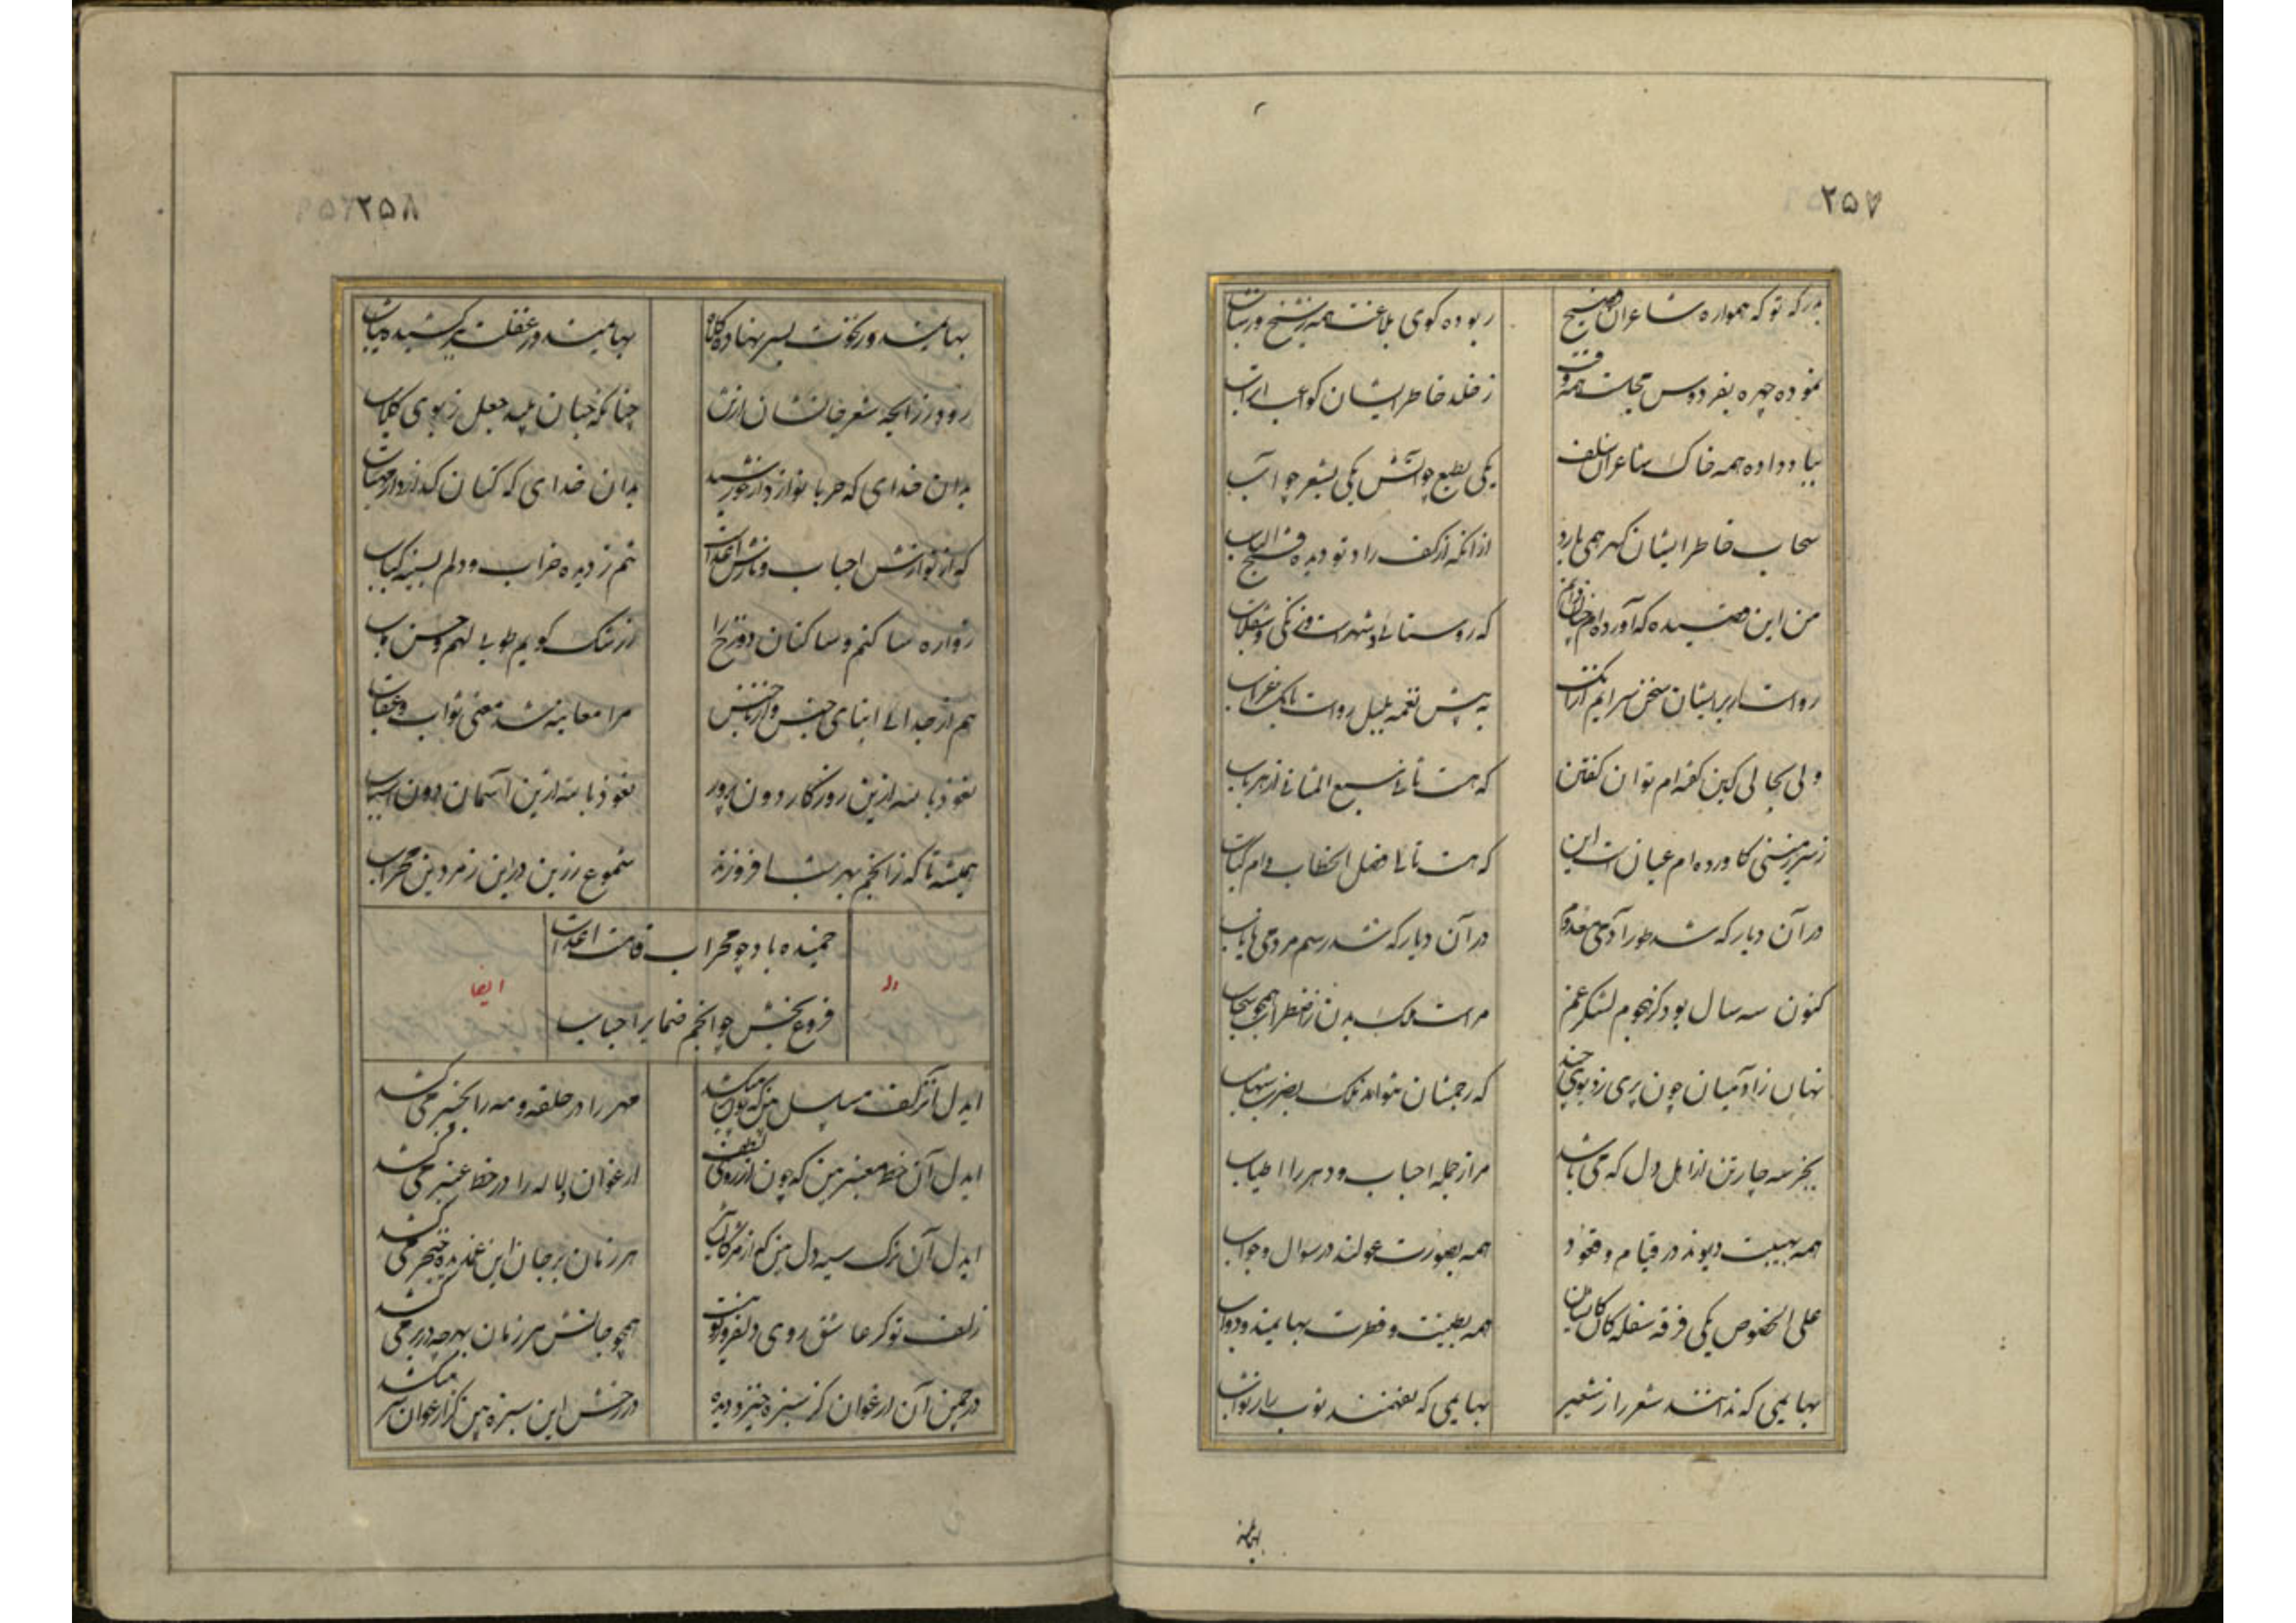 ۲۵۷
بدرکه تو که همواره شاعران فصیح
ربوده کوی بلاغت همه بشیخ و بشاب
نموده چهره بفردوس مجلست همه وقت
ز خلد خاطر ایشان کواعب اتراب
بباد داده همه خاک شاعران سلف
یکی بطبع چو آتش یکی بشعر چو آب
سحاب خاطر ایشان کهر همی بارد
ازانکه از کف راد تو دیده فتح الباب
من این قصیده که آورده‌ام چنان دانم
که روستائی و شهرست و زنکی و سقلاب
رواست بر ایشان سخن سرایم ار بانکت
به پیش نغمه بلبل رواست بانک غراب
ولی بجائی کین کفته‌ام توان کفتن
که هست تالی سبع المثانی از هر باب
ز سرزمینی کاورده‌ام عیانست این
که هست تالی فصل الخطاب و ام کتاب
در آن دیار که شد طور آدمی معدوم
در آن دیار که شد رسم مردمی نایاب
کنون سه سال بود کز هجوم لشکر غم
مراست بدن ز اضطراب همچو سحاب
نهان ز آدمیان چون پری ز دیوی چند
که رجمشان نتواند فلک بضرب شهاب
بجز سه چار تن از اهل دل که می باشد
مرا ز جمله احباب و دهر را اطیاب
همه بهیبت دیوند در قیام و قعود
همه بصورت غولند در سوال و جواب
علی الخصوص یکی فرقه سفله کان کایشان
همه بطینت و فطرت بهایمند و دواب
بهایمی که ندانند شعر را ز شعیر
بهایمی که نفهمند ثوب را ز ثواب
بهایمند
۲۵۸
بهایمند و رعونت بسر نهاده کلاه
بهایمند و ز غفلت ببر کشیده ثیاب
رود ز رایحه شعر جانشان از تن
چنانکه جان پلید جعل ز بوی کلاب
بدان خدای که حربا نوازد از خورشید
بدان خدای که کتان کدازد از مهتاب
که از نوازش احباب و نازش اعدا
تنم ز دیده خراب و دلم بسینه کباب
زواره ساکنم و ساکنان دوزخ را
ز رشک کویم طوبی لهم و حسن مآب
هم از جدائی ابنای جنس و از ناجنس
مرا معاینه شد معنی ثواب و عقاب
نعوذ بالله ازین روزکار دون پرور
نعوذ بالله ازین آسمان دون
همیشه تا که ز انجم بهر شب افروزند
شموع زرین در این زمردین محراب
خمیده باد چو محراب قامت اعدات
فروغ بخش چو انجم ضمایر احباب
وله
ایضا
ایدل آن زلف مسلسل بین که چون پیوسته
مهر را در حلقه و مه را بچنبر می کشد
ایدل آن خط معنبر بین که چون از روی لطف
ارغوان و لاله را در خط عنبر می کشد
ایدل آن ترک سیه دل بین که از مژکان
هر زمان بر جان این غمدیده خنجر می کشد
زلف تو کر عاشق روی دلفروز تو نیست
همچو جانش هر زمان بهر چه در بر می کشد
در چمن آن ارغوان کز سبزه خیزد دیده
در رخش این سبزه بین کز ارغوان سر میکشد